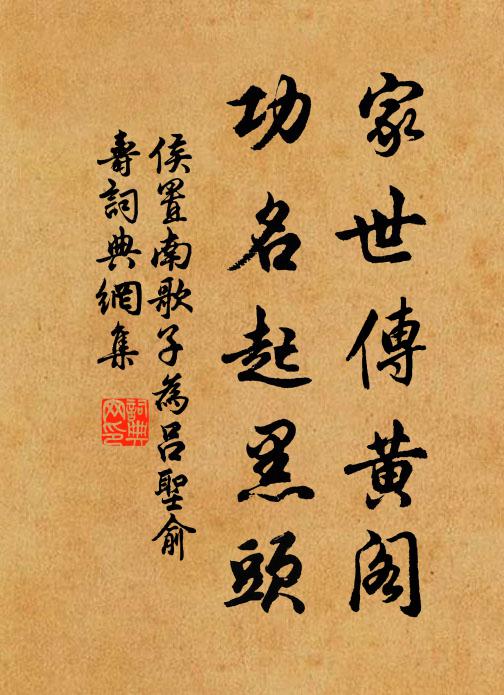 家世傳黃閣
功名起黑頭
侯置南歌子為呂聖俞
壽詞典網集
詞典
网印